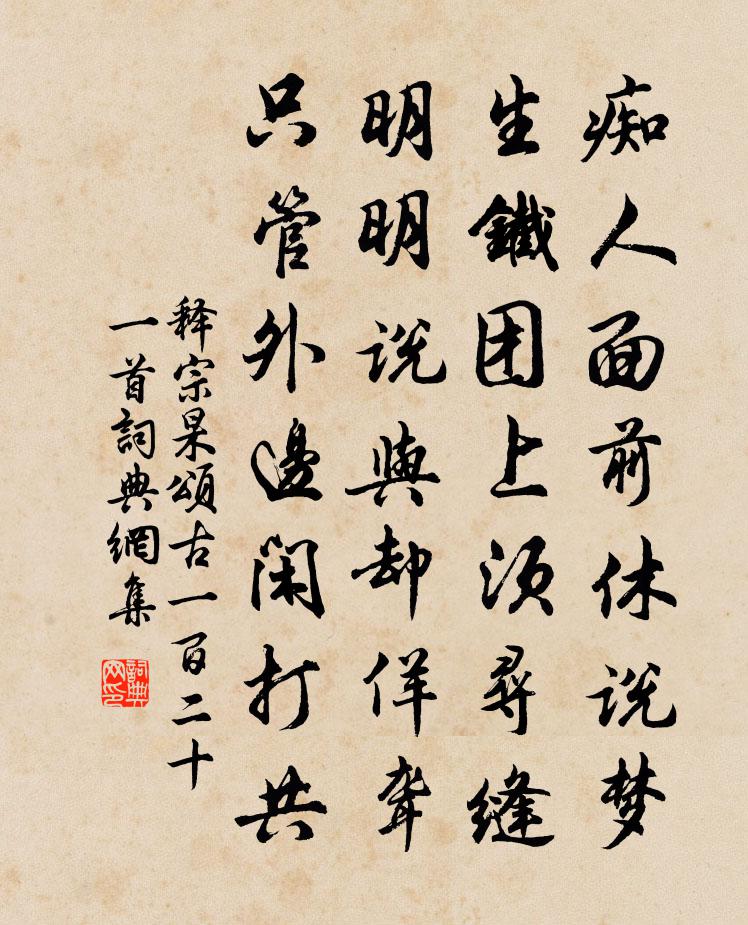 痴人面前休说梦
生鐵团上须尋縫
明明说與却佯聋
只管外邊闲打共
释宗杲頌古一百二十
一首詞典網集
詞典
网印